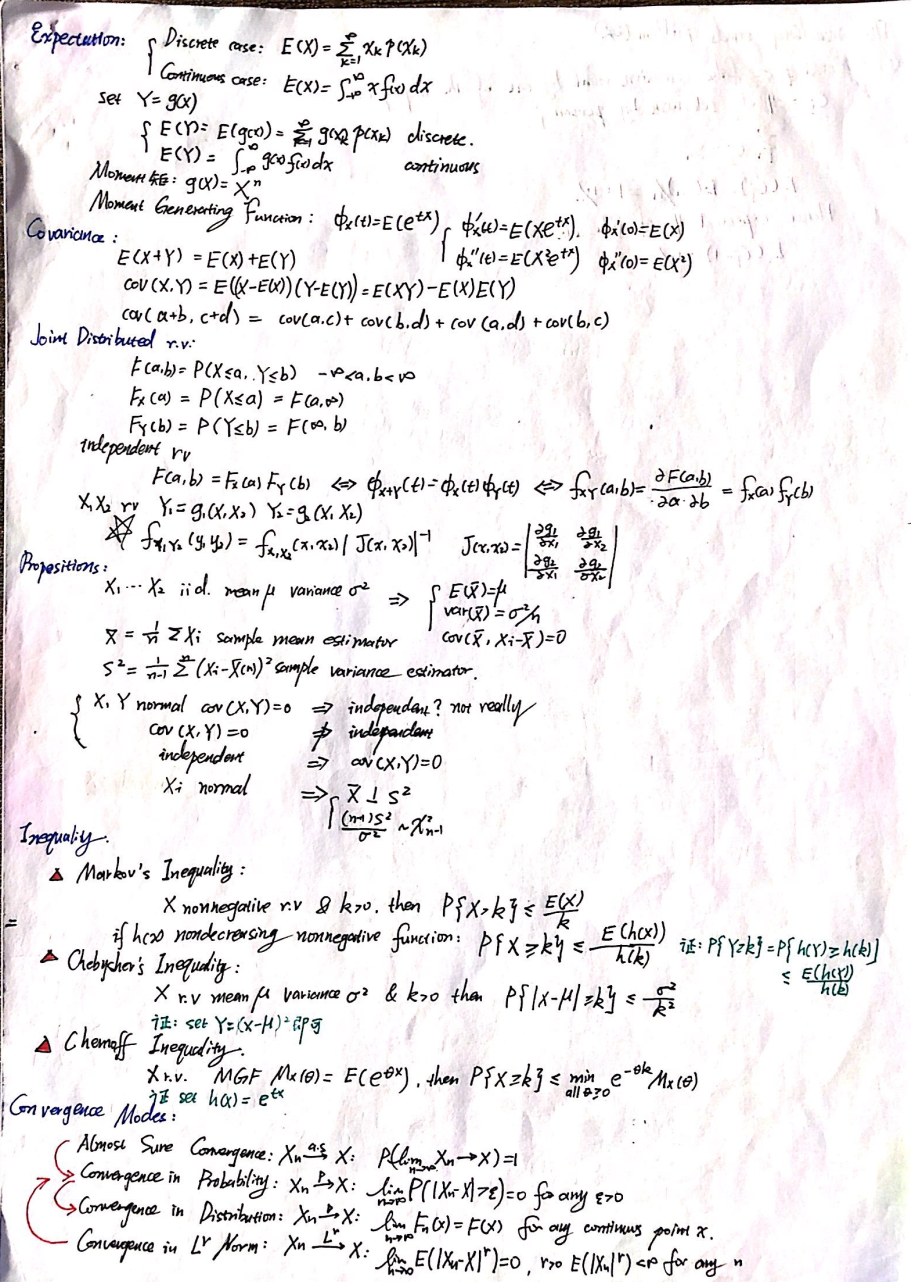 Expectation: { Discrete case: E(X) = Σ_{k=1}^{∞} x_k p(x_k)
Continuous case: E(X) = ∫_{-∞}^{∞} x f(x) dx
set Y = g(x)
{ E(Y) = E(g(x)) = Σ_{k=1}^{∞} g(x_k) p(x_k) discrete.
E(Y) = ∫_{-∞}^{∞} g(x) f(x) dx continuous
Moment 矩: g(X) = X^n
Moment Generating Function: ϕ_x(t) = E(e^{tX}) { ϕ_x'(t) = E(Xe^{tX}). ϕ_x'(0) = E(X)
ϕ_x''(t) = E(X²e^{tX}) ϕ_x''(0) = E(X²)
Covariance:
E(X+Y) = E(X) + E(Y)
cov(X,Y) = E((X-E(X))(Y-E(Y)) = E(XY) - E(X)E(Y)
cov(a+b, c+d) = cov(a,c) + cov(b,d) + cov(a,d) + cov(b,c)
Joint Distributed r.v:
F(a,b) = P(X≤a, Y≤b) -∞<a,b<∞
F_X(a) = P(X≤a) = F(a,∞)
F_Y(b) = P(Y≤b) = F(∞,b)
independent rv
F(a,b) = F_X(a) F_Y(b) ⇔ ϕ_{X+Y}(t) = ϕ_X(t) ϕ_Y(t) ⇔ f_{XY}(a,b) = ∂F(a,b)/∂a·∂b = f_X(a) f_Y(b)
X₁X₂ rv Y₁ = g₁(X₁X₂) Y₂ = g₂(X₁X₂)
☆ f_{Y₁Y₂}(y₁y₂) = f_{X₁X₂}(x₁x₂) |J(x₁x₂)|^{-1} J(x₁x₂) = | ∂g₁/∂x₁ ∂g₁/∂x₂
∂g₂/∂x₁ ∂g₂/∂x₂ |
Propositions:
X₁ ⋯ X₂ iid. mean μ variance σ² ⇒ { E(X̄) = μ
var(X̄) = σ²/n
X̄ = 1/n ΣX_i sample mean estimator cov(X̄, X_i-X̄) = 0
S² = 1/(n-1) Σ^n (X_i - X̄(n))² sample variance estimator.
{ X, Y normal cov(X,Y)=0 ⇒ independent? not really
cov(X,Y)=0 ⇏ independent
independent ⇒ cov(X,Y)=0
X_i normal ⇒ { X̄ ⊥ S²
(n-1)S²/σ² ~ χ²_{n-1}
Inequality.
△ Markov's Inequality:
X nonnegative r.v & k>0, then P{X>k} ≤ E(X)/k
if h(x) nondecreasing nonnegative function: P{X≥k} ≤ E(h(X))/h(k) 证: P{Y≥k} = P{h(Y)≥h(k)}
≤ E(h(Y))/h(k)
△ Chebychev's Inequality:
X r.v mean μ variance σ² & k>0 then P{|X-μ|≥k} ≤ σ²/k²
证: set Y=(X-μ)² 即可
△ Chernoff Inequality.
X r.v. MGF M_X(θ) = E(e^{θX}), then P{X≥k} ≤ min_{all θ≥0} e^{-θk} M_X(θ)
证 set h(x) = e^{tx}
Convergence Modes:
Almost Sure Convergence: X_n →^{a.s} X: P(lim_{n→∞} X_n → X) = 1
Convergence in Probability: X_n →^{P} X: lim_{n→∞} P(|X_n-X|>ε) = 0 for any ε>0
Convergence in Distribution: X_n →^{D} X: lim_{n→∞} F_n(x) = F(x) for any continuous point x.
Convergence in L^r Norm: X_n →^{L^r} X: lim_{n→∞} E(|X_n-X|^r) = 0, r>0 E(|X_n|^r) <∞ for any n